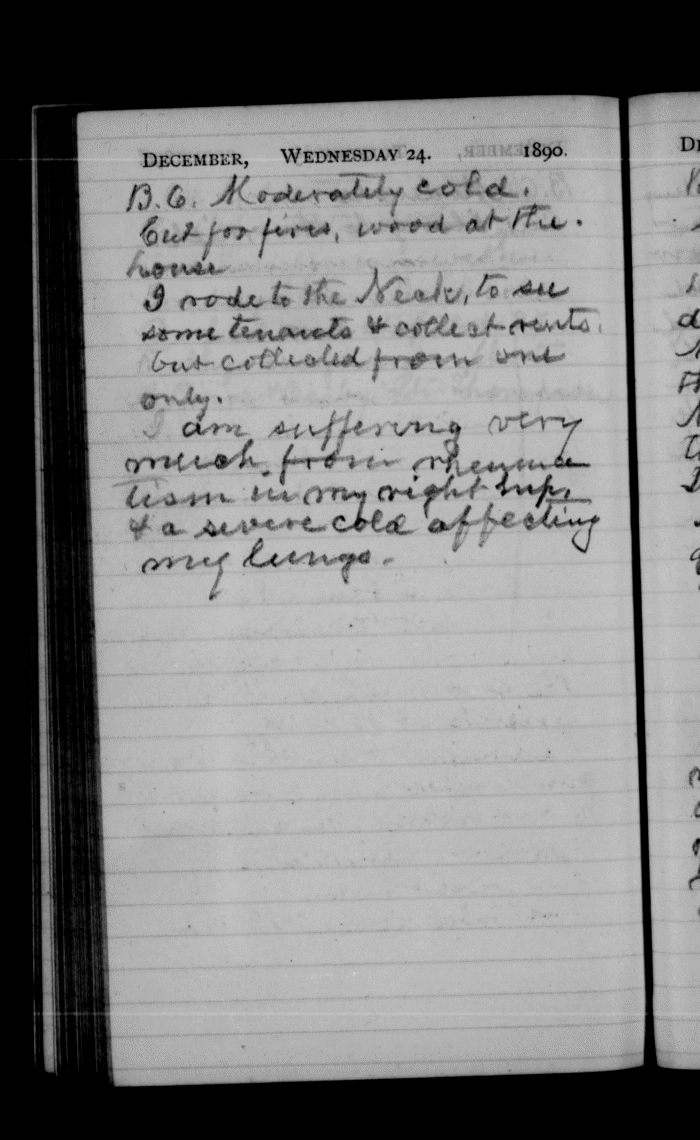 DECEMBER, WEDNESDAY 24. 1890.
B.C. Moderately cold.
Cut for fires, wood at the.
house
I rode to the Neck, to see
some tenants & collect rents.
but collected from one
only.
I am suffering very
much from rheuma
tism in my right hip,
& a severe cold affecting
my lungs.